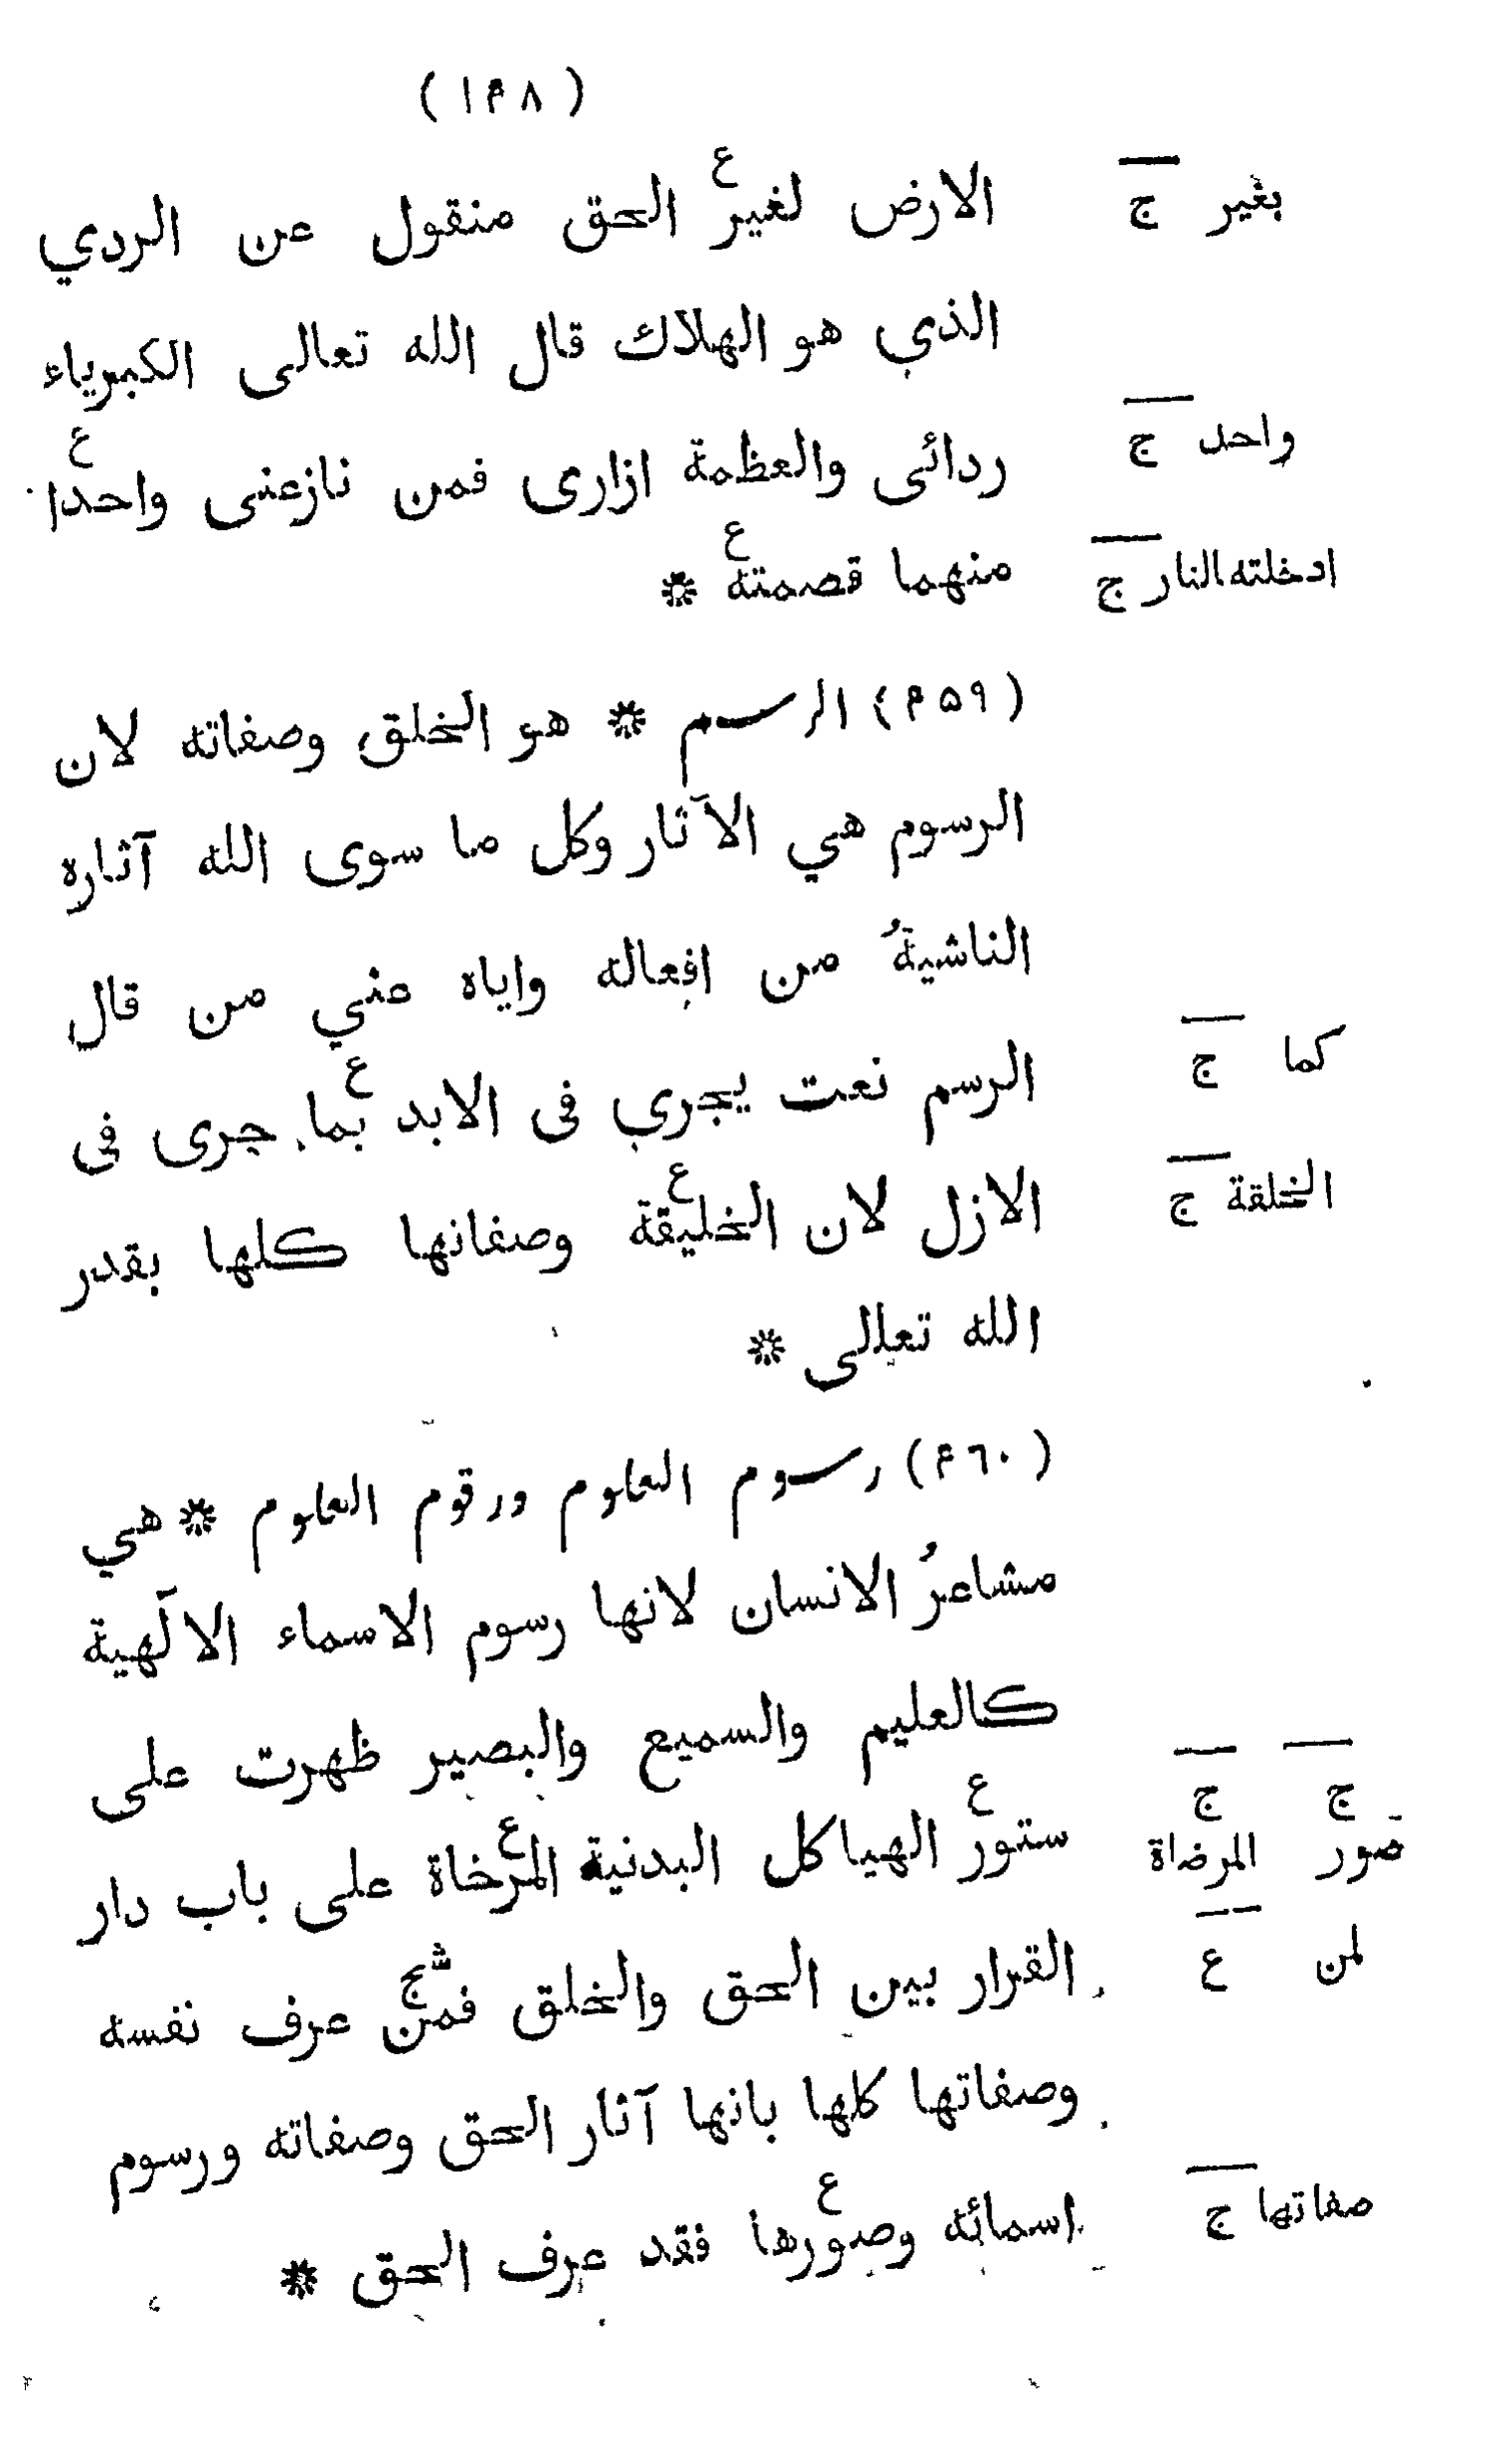 (۱۴۸)
الارض لغير ع الحق منقول عن الردي
بغير ج
الذي هو الهلاك قال الله تعالى الكبرياء
ردائى والعظمة ازارى فمن نازعنى واحدا ع
واحد ج
منهما قصمته ع *
ادخلته النار ج
(۴۵۹) الرسم * هو الخلق وصفاته لان
الرسوم هي الآثار وكل ما سوى الله آثاره
الناشيةُ من افعاله واياه عني من قال
الرسم نعت يجري فى الابد بما ع جرى فى
كما ج
الازل لان الخليقة ع وصفاتها كلها بقدر
الخلقة ج
الله تعالى *
(۴۶۰) رسوم العلوم ورقوم العلوم * هي
مشاعرُ الانسان لانها رسوم الاسماء الالٓهية
كالعليم والسميع والبصير ظهرت على
ستور ع الهياكل البدنية المرخاة ع على باب دار
صور ج المرضاة ج
القرار بين الحق والخلق فمن ش ج عرف نفسه
لمن ع
وصفاتها كلها بانها آثار الحق وصفاته ورسوم
اسمائه وصورها ع فقد عرف الحق *
صفاتها ج